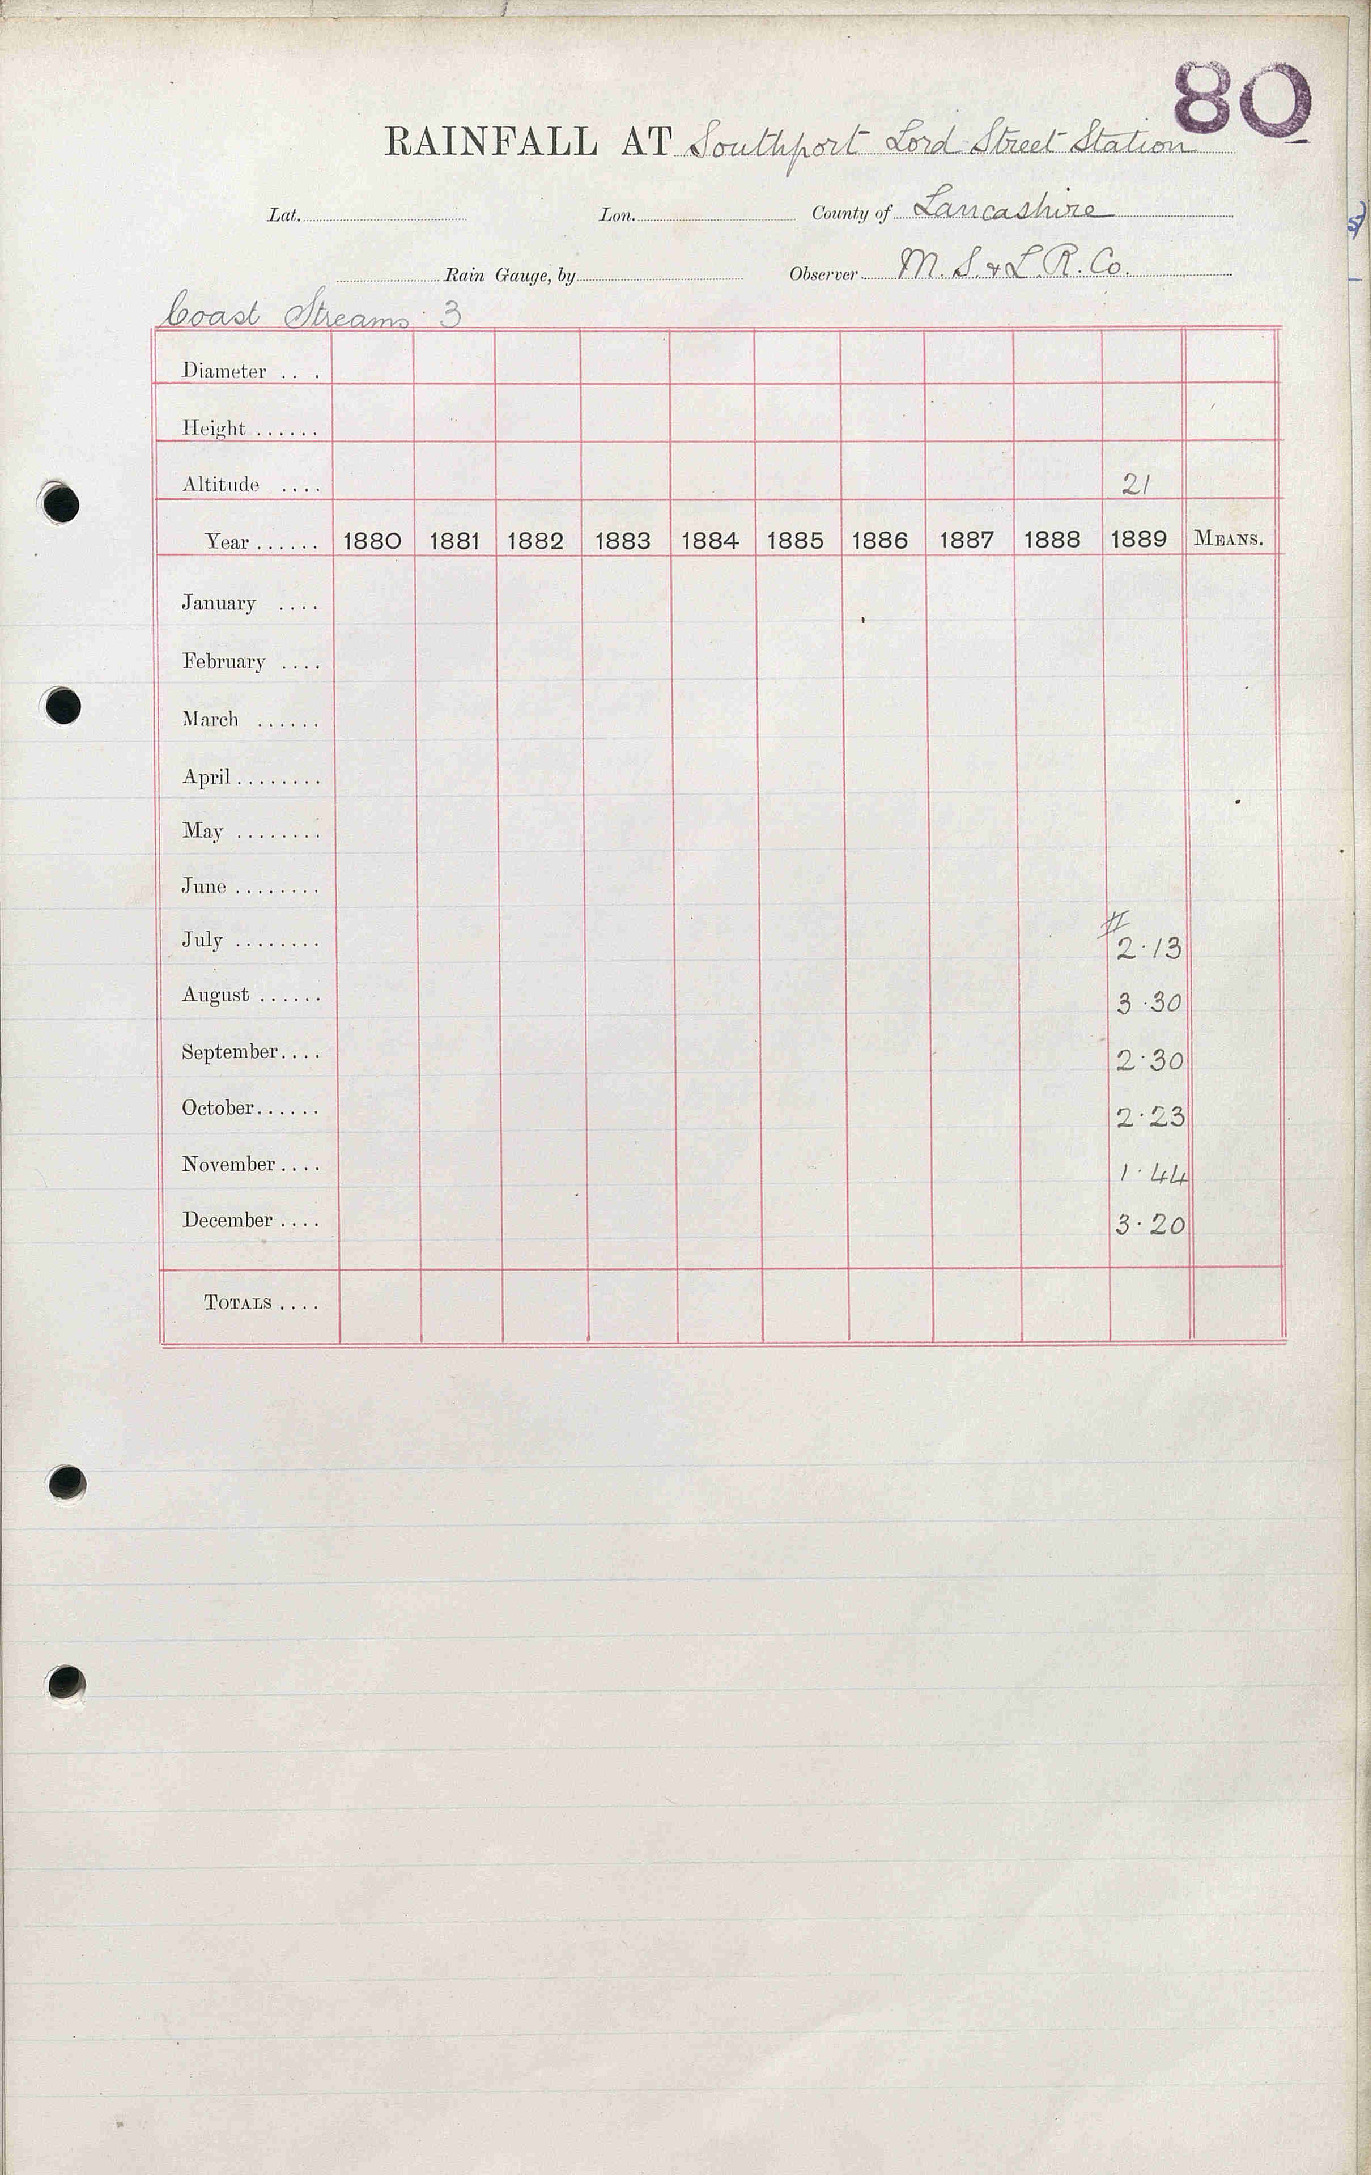 80
RAINFALL AT Southport Lord Street Station
Lat. Lon. County of Lancashire
Rain Gauge, by Observer M. S. & L. R. Co.
Coast Streams 3
Diameter . . .
Height ......
Altitude .... 21
Year ...... 1880 1881 1882 1883 1884 1885 1886 1887 1888 1889 MEANS.
January ....
February ....
March ......
April ........
May ........
June ........
July ........ # 2.13
August ...... 3.30
September.... 2.30
October...... 2.23
November .... 1.44
December .... 3.20
TOTALS ....